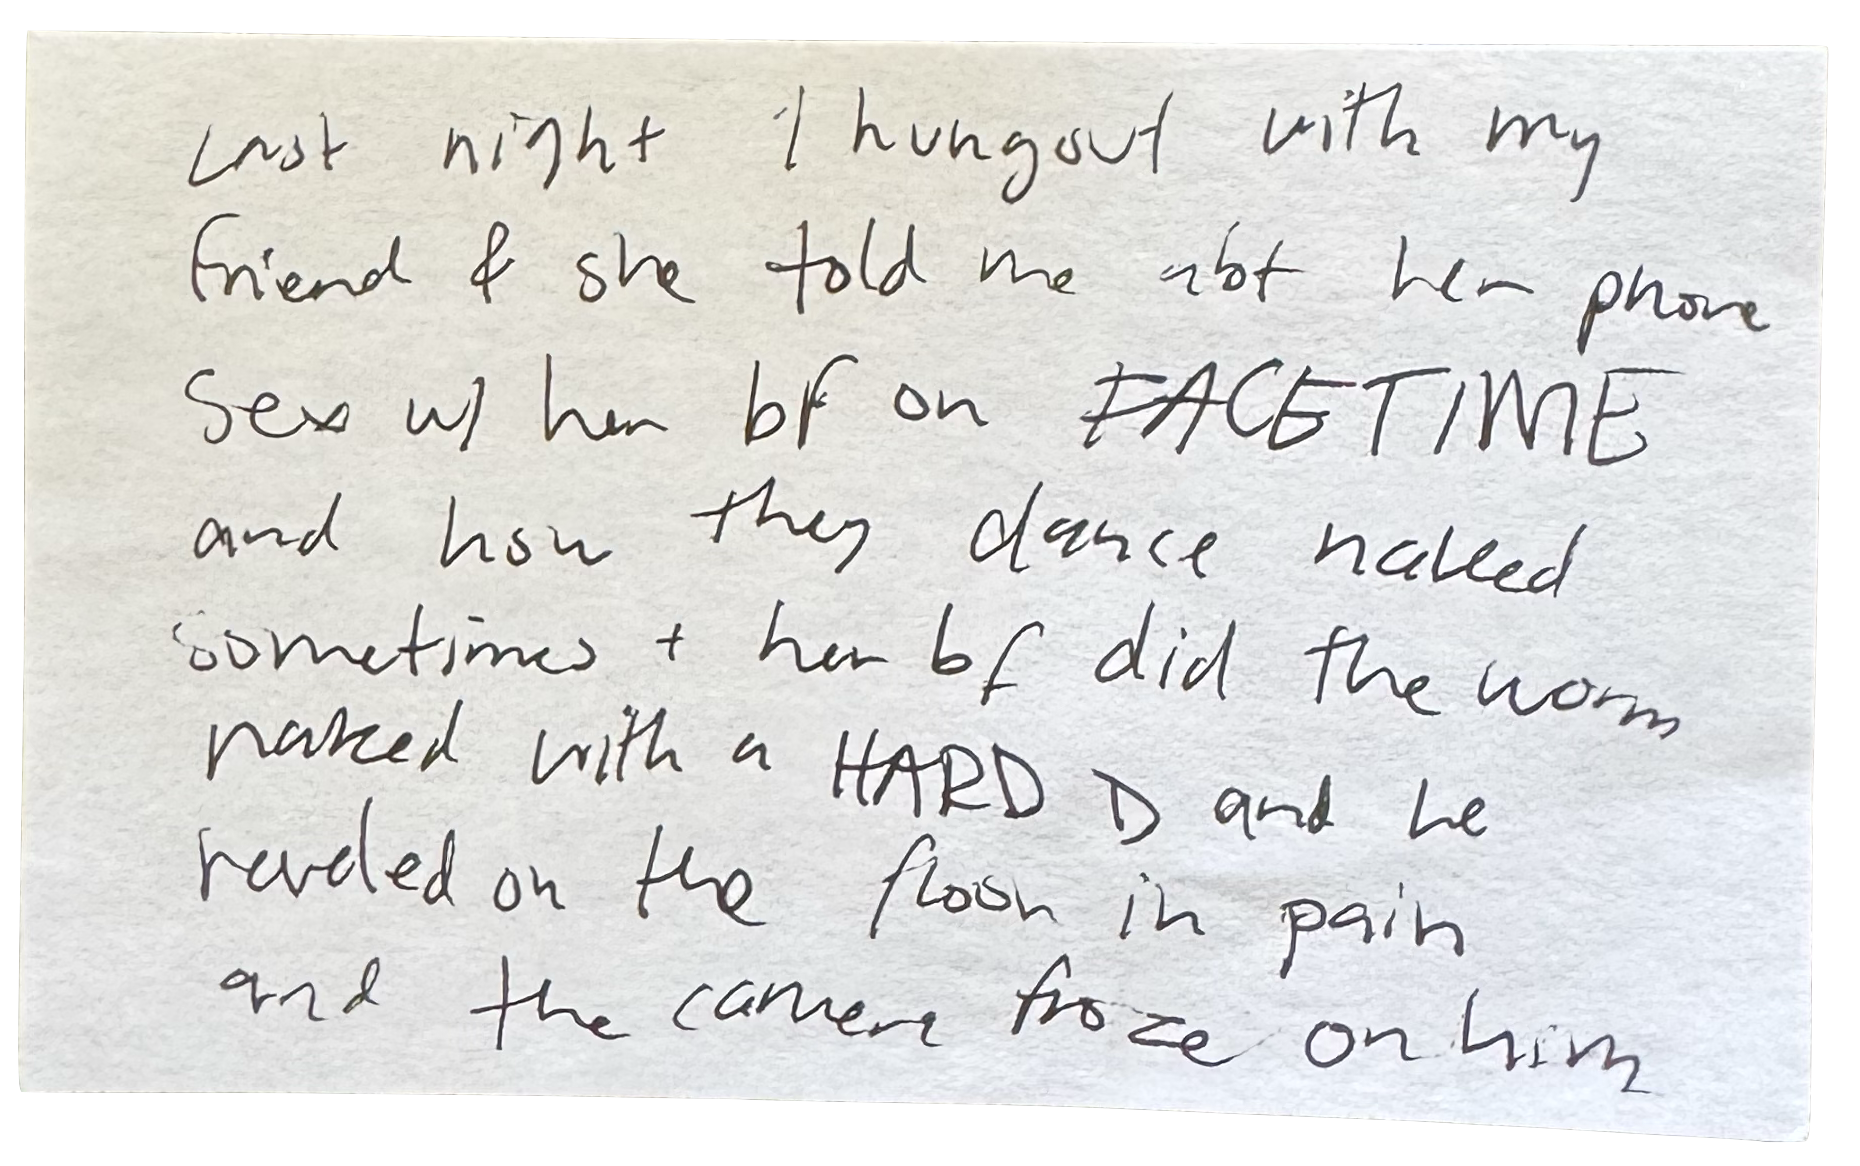 Last night I hungout with my
friend & she told me abt her phone
sex w/ her bf on FACETIME
and how they dance naked
sometimes + her bf did the worm
naked with a HARD D and he
on the floor in pain
and the camera froze on him